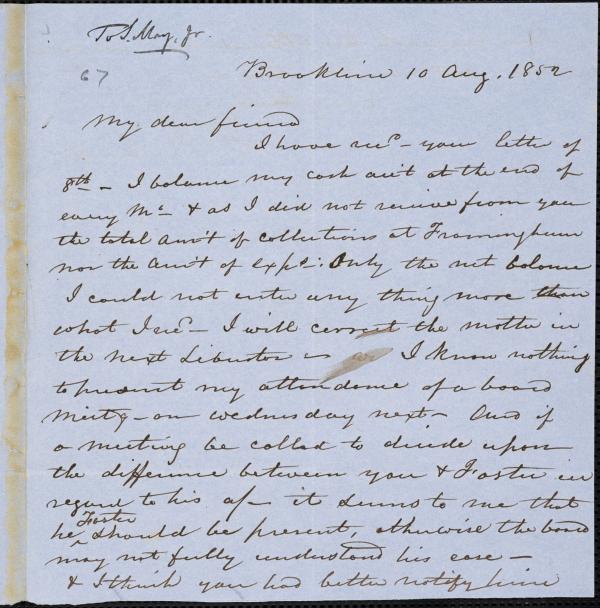 To S. May, Jr.
67
Brookline 10 Aug. 1852
My dear friend
I have recd — your letter of
8th — I balance my cash acct at the end of
every Mo — & as I did not receive from you
the total amt of collections at Framingham
nor the amt of exps: Only the net balance
I could not enter any thing more than
what I recd — I will correct the matter in
the next Liberator — I know nothing
to prevent my attendance of a board
meetg — on wednesday next — And if
a meeting be called to decide upon
the difference between you & Foster in
regard to his a/c — it seems to me that
he Foster should be present, otherwise the board
may not fully understand his case —
& I think you had better notify him